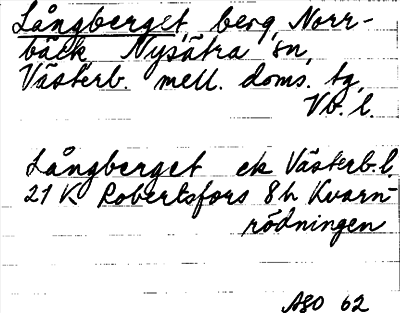 Långberget, berg, Norr-
bäck, Nysätra sn,
Västerb. mell. doms. tg,
Vb. l.
Långberget ek Västerb. l.
21 K Robertsfors 8h Kvarn-
rödningen
ASO 62